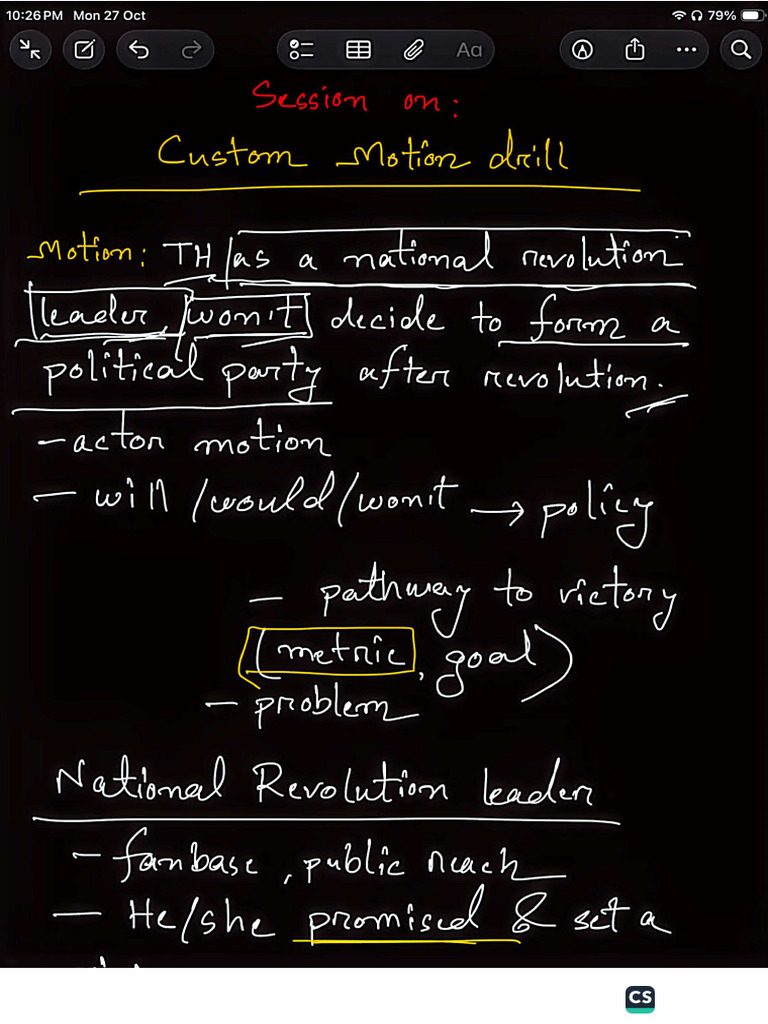 10:26 PM Mon 27 Oct 79%
Aa
Session on:
Custom Motion drill
Motion: TH/as a national revolution
leader, won't decide to form a
political party after revolution.
- actor motion
- will/would/won't → policy
- pathway to victory
(metric, goal)
- problem
National Revolution leader
- fanbase, public reach
- He/she promised & set a
CS